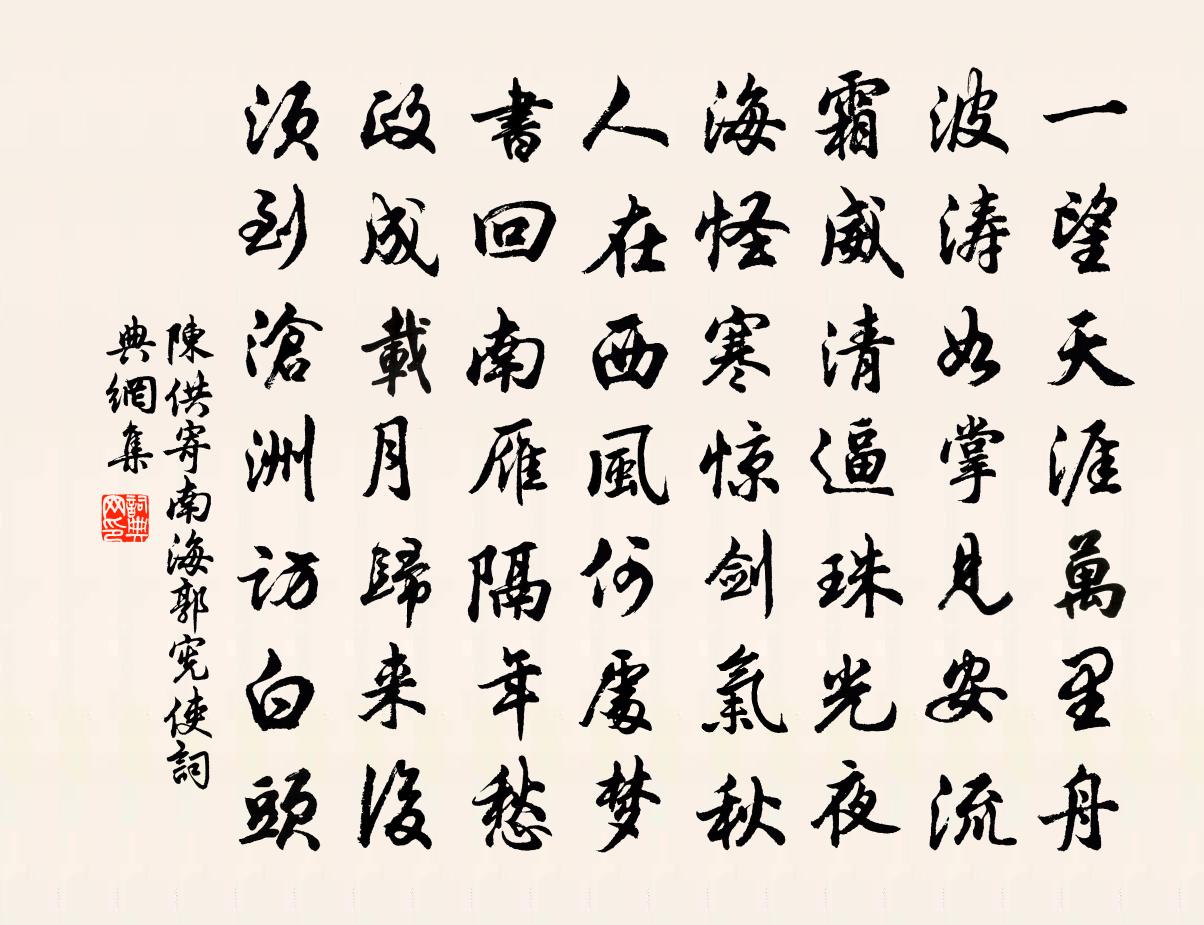 一望天涯萬里舟
波涛如掌見安流
霜威清逼珠光夜
海怪寒惊剑氣秋
人在西風何處梦
書回南雁隔年愁
政成載月歸来後
須到滄洲訪白頭
陳供寄南海郭宪使詞
典網集
詞典网印